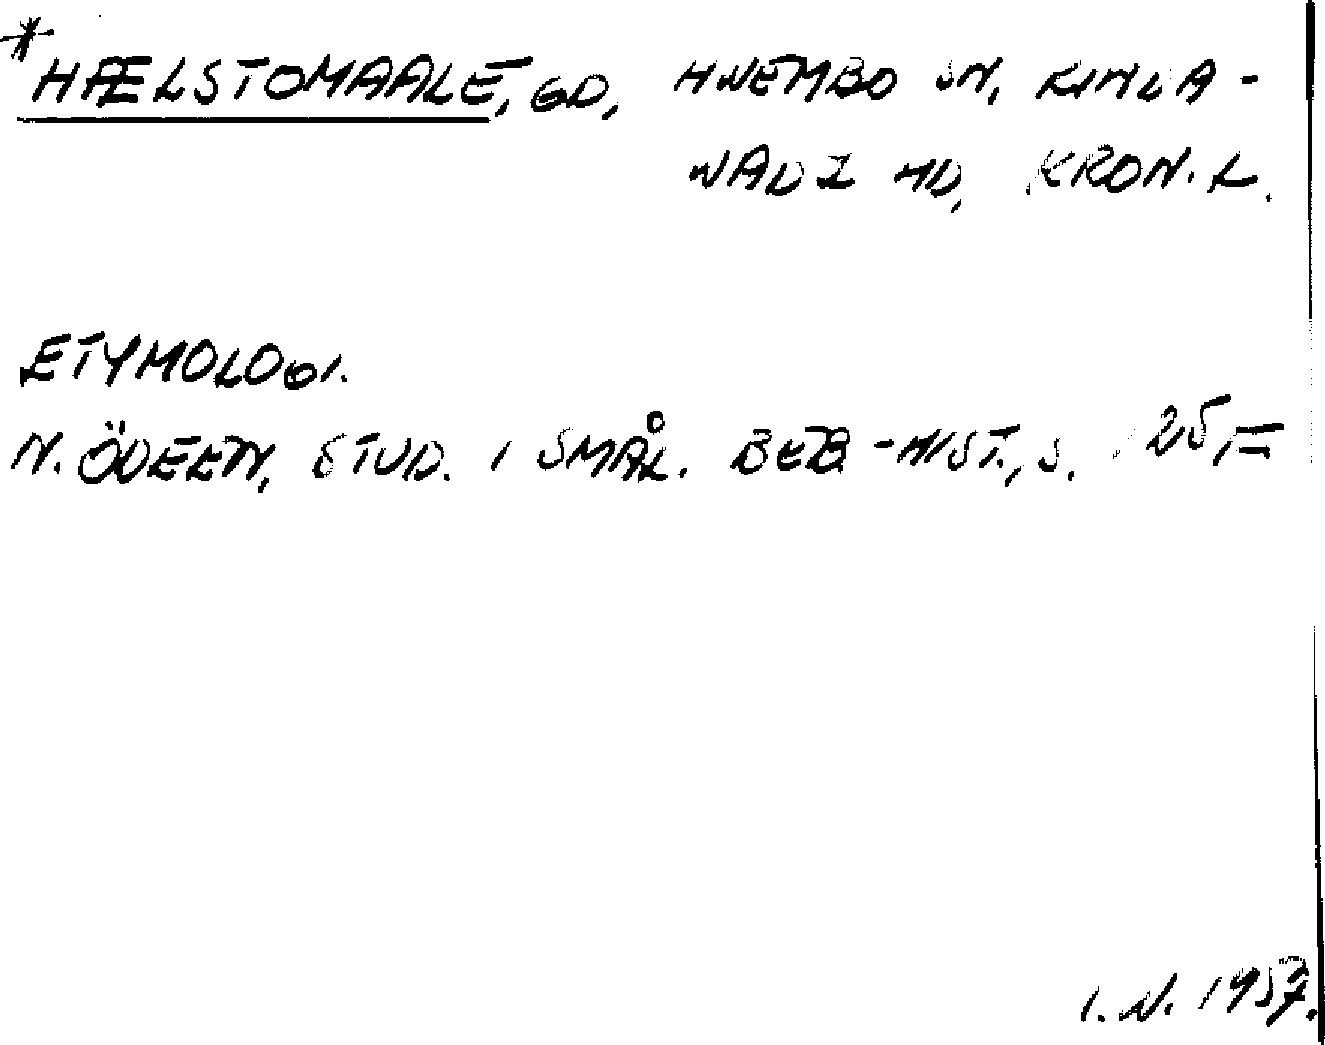 *HÆLSTOMAALE, GD, HNEMBO SN, KINLA-
WADZ HD, KRON. L.
ETYMOLOGI.
N. ÖDEEN, STUD. I SMÅL. BEB-HIST., S. 25
I. N. 1957.